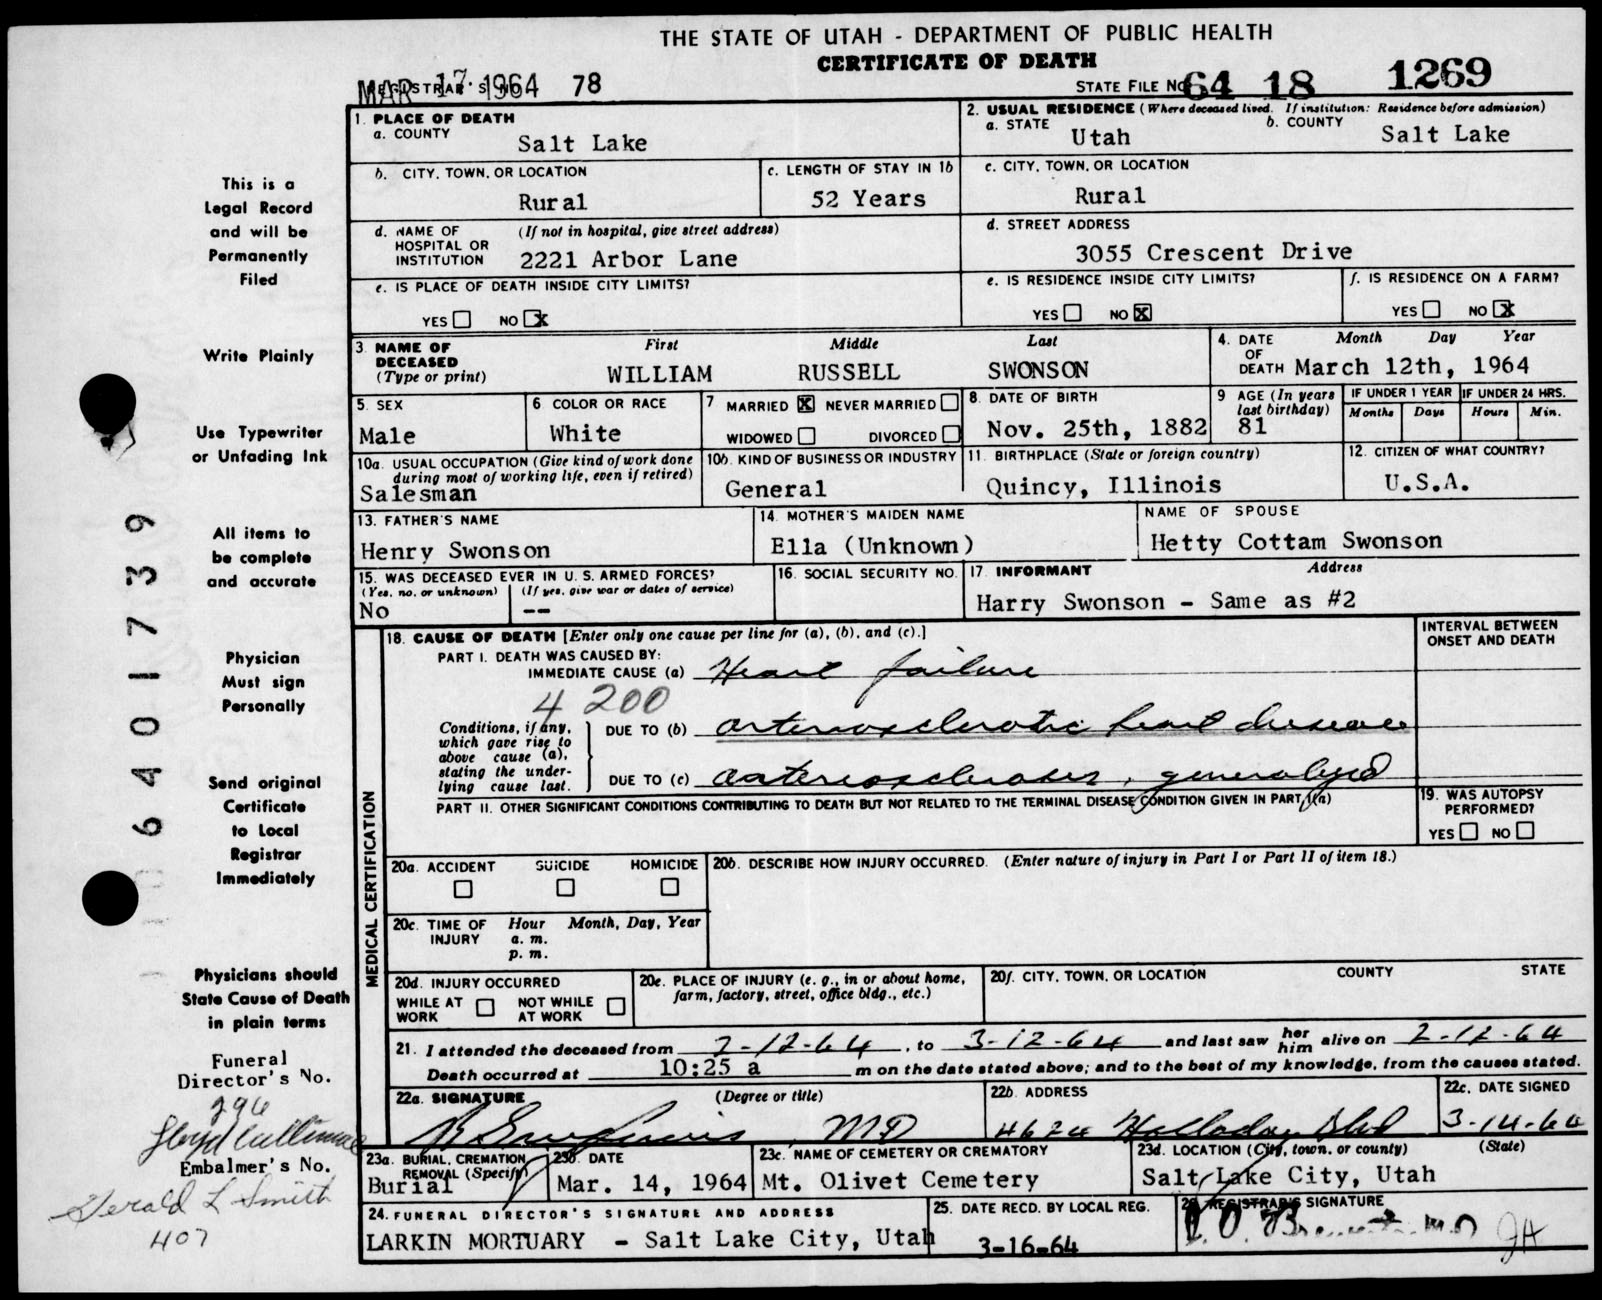 THE STATE OF UTAH - DEPARTMENT OF PUBLIC HEALTH
CERTIFICATE OF DEATH
MAR 17 1964
REGISTRAR'S NO. 78
STATE FILE NO. 64 18 1269
1. PLACE OF DEATH
a. COUNTY
Salt Lake
2. USUAL RESIDENCE (Where deceased lived. If institution: Residence before admission)
a. STATE Utah
b. COUNTY Salt Lake
b. CITY, TOWN, OR LOCATION
Rural
c. LENGTH OF STAY IN 1b
52 Years
c. CITY, TOWN, OR LOCATION
Rural
d. NAME OF HOSPITAL OR INSTITUTION
(If not in hospital, give street address)
2221 Arbor Lane
d. STREET ADDRESS
3055 Crescent Drive
e. IS PLACE OF DEATH INSIDE CITY LIMITS?
YES NO X
e. IS RESIDENCE INSIDE CITY LIMITS?
YES NO X
f. IS RESIDENCE ON A FARM?
YES NO X
3. NAME OF DECEASED (Type or print)
First Middle Last
WILLIAM RUSSELL SWONSON
4. DATE OF DEATH
Month Day Year
March 12th, 1964
5. SEX
Male
6. COLOR OR RACE
White
7 MARRIED X NEVER MARRIED
WIDOWED DIVORCED
8. DATE OF BIRTH
Nov. 25th, 1882
9 AGE (In years last birthday)
81
IF UNDER 1 YEAR
Months Days
IF UNDER 24 HRS.
Hours Min.
10a. USUAL OCCUPATION (Give kind of work done during most of working life, even if retired)
Salesman
10b. KIND OF BUSINESS OR INDUSTRY
General
11. BIRTHPLACE (State or foreign country)
Quincy, Illinois
12. CITIZEN OF WHAT COUNTRY?
U.S.A.
13. FATHER'S NAME
Henry Swonson
14. MOTHER'S MAIDEN NAME
Ella (Unknown)
NAME OF SPOUSE
Hetty Cottam Swonson
15. WAS DECEASED EVER IN U. S. ARMED FORCES?
(Yes, no, or unknown) (If yes, give war or dates of service)
No --
16. SOCIAL SECURITY NO.
17. INFORMANT Address
Harry Swonson - Same as #2
MEDICAL CERTIFICATION
18. CAUSE OF DEATH [Enter only one cause per line for (a), (b), and (c).]
INTERVAL BETWEEN ONSET AND DEATH
PART I. DEATH WAS CAUSED BY:
IMMEDIATE CAUSE (a) Heart failure
4 200
Conditions, if any, which gave rise to above cause (a), stating the underlying cause last.
DUE TO (b) arteriosclerotic heart disease
DUE TO (c) arteriosclerosis, generalized
PART II. OTHER SIGNIFICANT CONDITIONS CONTRIBUTING TO DEATH BUT NOT RELATED TO THE TERMINAL DISEASE CONDITION GIVEN IN PART I(a)
19. WAS AUTOPSY PERFORMED?
YES NO
20a. ACCIDENT SUICIDE HOMICIDE
20b. DESCRIBE HOW INJURY OCCURRED. (Enter nature of injury in Part I or Part II of item 18.)
20c. TIME OF INJURY Hour Month, Day, Year
a. m.
p. m.
20d. INJURY OCCURRED
WHILE AT WORK NOT WHILE AT WORK
20e. PLACE OF INJURY (e. g., in or about home, farm, factory, street, office bldg., etc.)
20f. CITY, TOWN, OR LOCATION COUNTY STATE
21. I attended the deceased from 2-12-64, to 3-12-64 and last saw her him alive on 2-12-64
Death occurred at 10:25 a m on the date stated above; and to the best of my knowledge, from the causes stated.
22a. SIGNATURE (Degree or title)
MD
22b. ADDRESS
4624 Holladay Blvd
22c. DATE SIGNED
3-14-64
23a. BURIAL, CREMATION REMOVAL (Specify)
Burial
23b. DATE
Mar. 14, 1964
23c. NAME OF CEMETERY OR CREMATORY
Mt. Olivet Cemetery
23d. LOCATION (City, town, or county) (State)
Salt Lake City, Utah
24. FUNERAL DIRECTOR'S SIGNATURE AND ADDRESS
LARKIN MORTUARY - Salt Lake City, Utah
25. DATE RECD. BY LOCAL REG.
3-16-64
26. REGISTRAR'S SIGNATURE
This is a
Legal Record
and will be
Permanently
Filed
Write Plainly
Use Typewriter
or Unfading Ink
All items to
be complete
and accurate
Physician
Must sign
Personally
Send original
Certificate
to Local
Registrar
Immediately
Physicians should
State Cause of Death
in plain terms
Funeral
Director's No.
296
Embalmer's No.
Gerald L Smith
407
6401739